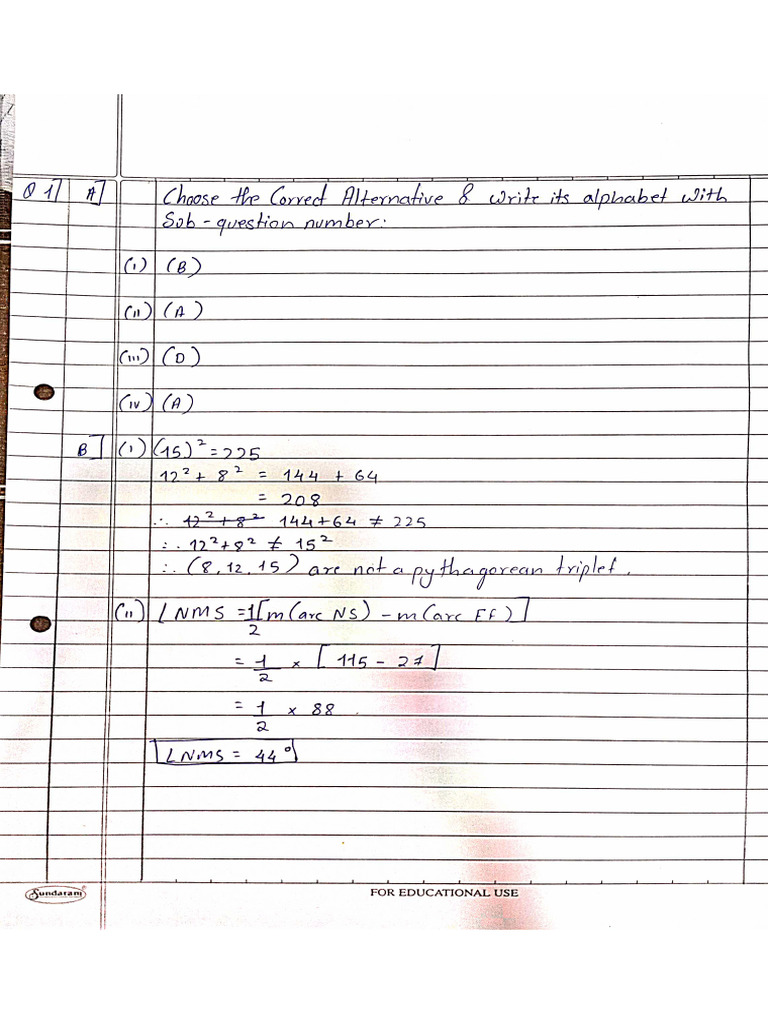 Q 1] A] Choose the Correct Alternative & write its alphabet with
Sub-question number:
(i) (B)
(ii) (A)
(iii) (D)
(iv) (A)
B] (i) (15)² = 225
12² + 8² = 144 + 64
= 208
∴ 12² + 8² 144 + 64 ≠ 225
∴ 12² + 8² ≠ 15²
∴ (8, 12, 15) are not a pythagorean triplet.
(ii) ∠NMS = 1/2 [m(arc NS) - m(arc EF)]
= 1/2 × [115 - 27]
= 1/2 × 88
∠NMS = 44°
Sundaram® FOR EDUCATIONAL USE